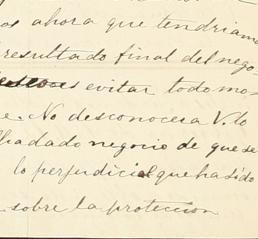 os ahora que tendriamo
resultado final del nego-
evitar todo mo-
e. No desconocera V. lo
lhadado negocio de que se
lo perjudicial que ha sido
sobre la proteccion